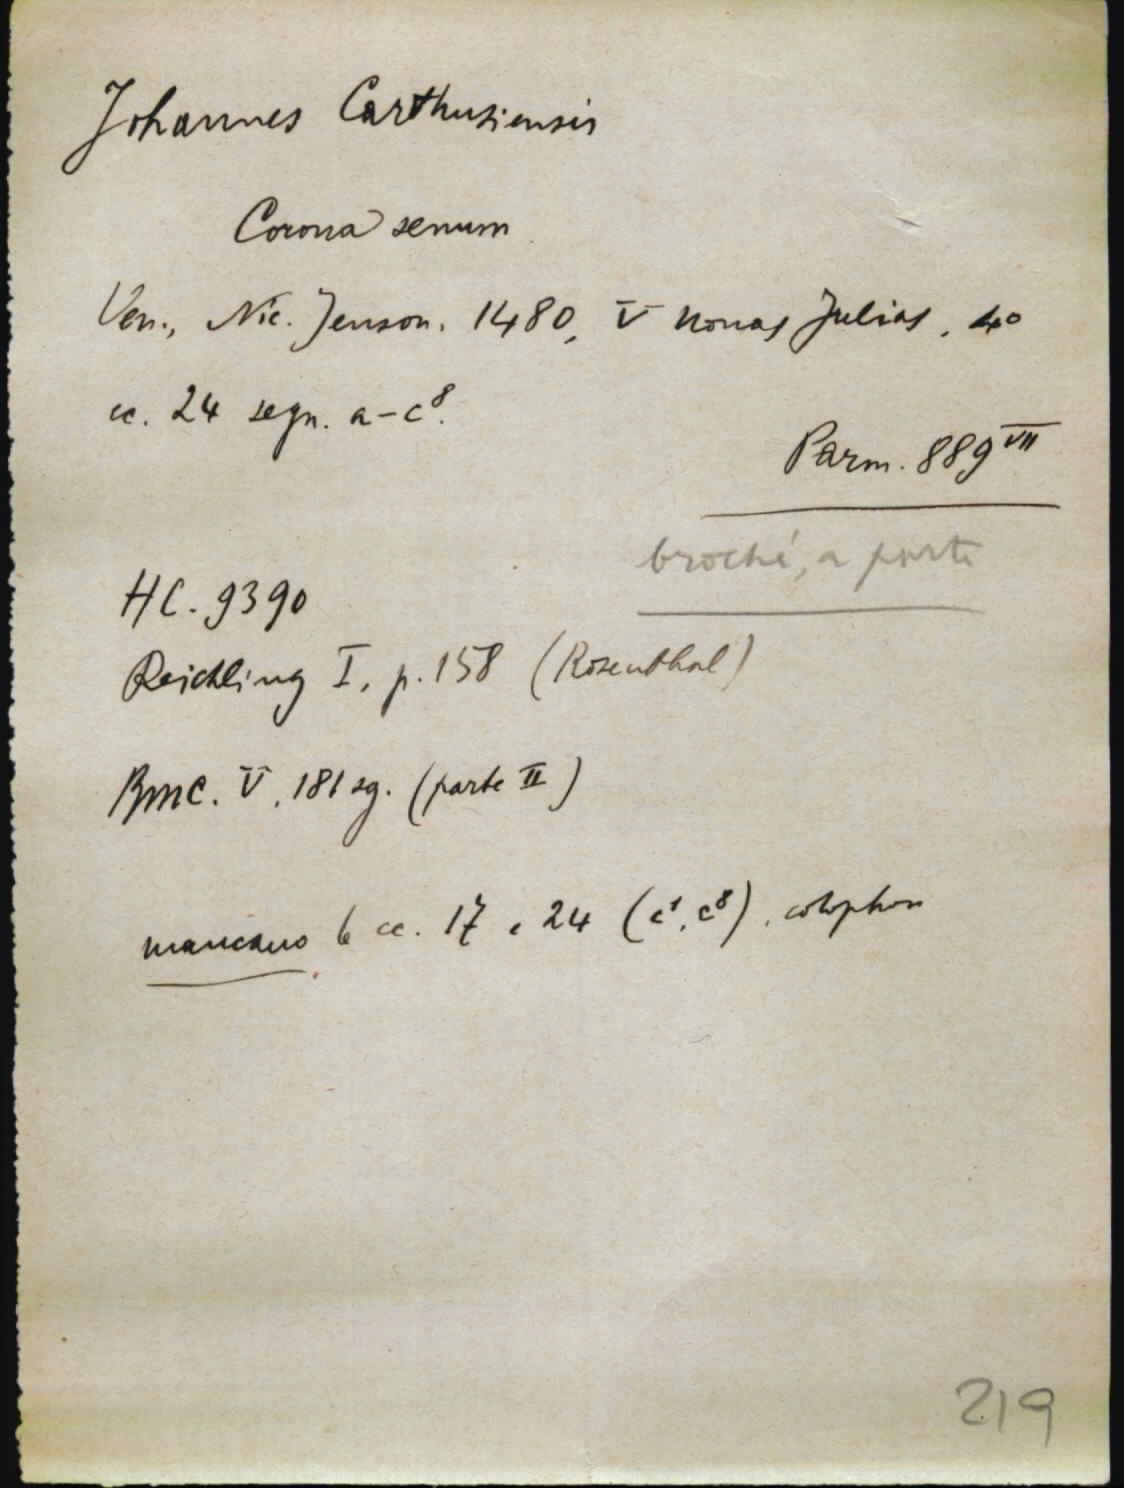 Johannes Carthusiensis
Corona senum
Ven., Nic. Jenson. 1480, V Nonas Julias. 4°
cc. 24 segn. a-c⁸.
Parm. 889 VII
broché, a parte
HC. 9390
Reichling I, p. 158 (Rosenthal)
BMC. V. 181 sg. (parte II)
mancano le cc. 17 e 24 (c¹, c⁸). colophon
219